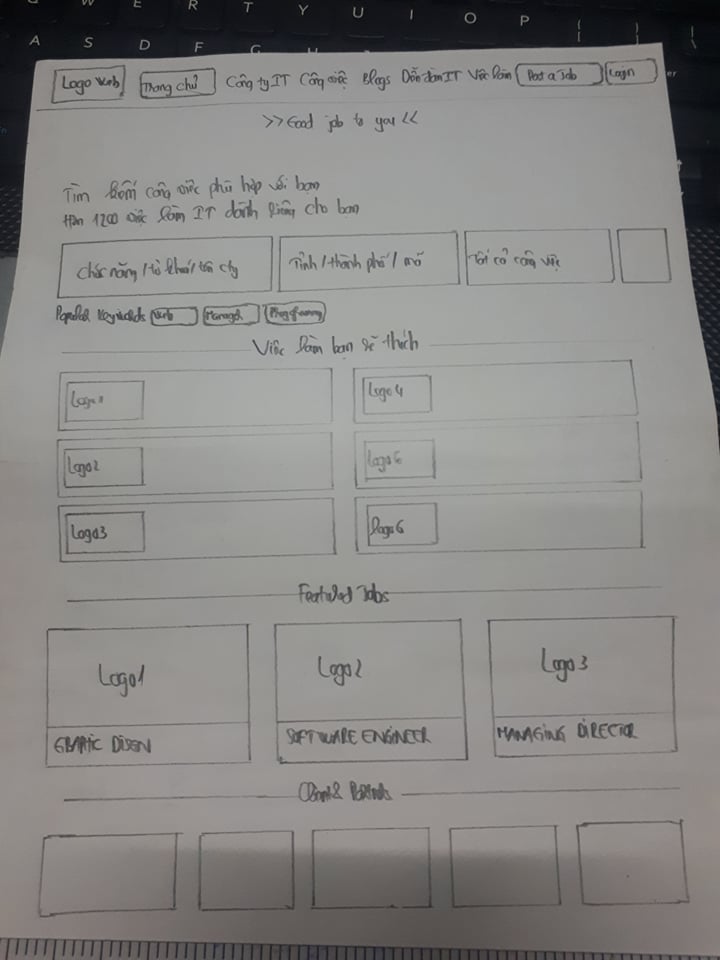 W E R T Y U I O P
A S D F G
Logo Web Trang chủ Công ty IT Công việc Blogs Diễn đàn IT Việc làm Post a Job Login
>> Good job to you <<
Tìm kiếm công việc phù hợp với bạn
Hơn 1200 việc làm IT dành riêng cho bạn
Chức năng / từ khoá / tên cty Tỉnh / thành phố / mã Tất cả công việc
Popular Keywords Web Manager
Việc làm bạn sẽ thích
Logo1 Logo4
Logo2 Logo6
Logo3 Logo6
Featured Jobs
Logo1 Logo2 Logo3
GRAPHIC DISEN SOFTWARE ENGINEER MANAGING DIRECTOR